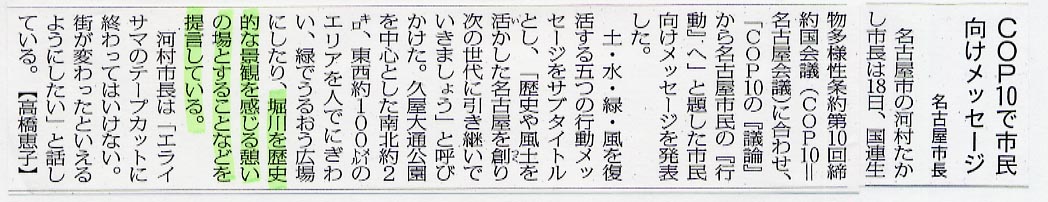 COP10で市民
向けメッセージ
名古屋市長
　名古屋市の河村たか
し市長は18日、国連生
物多様性条約第10回締
約国会議（COP10＝
名古屋会議）に合わせ、
「COP10の『議論』
から名古屋市民の『行
動』へ」と題した市民
向けメッセージを発表
した。
　土・水・緑・風を復
活する五つの行動メッ
セージをサブタイトル
とし、「歴史や風土を
活かした名古屋を創り
次の世代に引き継いで
いきましょう」と呼び
かけた。久屋大通公園
を中心とした南北約2
キロ、東西約100メートルの
エリアを人でにぎわ
い、緑でうるおう広場
にしたり、堀川を歴史
的な景観を感じる憩い
の場とすることなどを
提言している。
　河村市長は「エライ
サマのテープカットに
終わってはいけない。
街が変わったといえる
ようにしたい」と話し
ている。【高橋恵子】